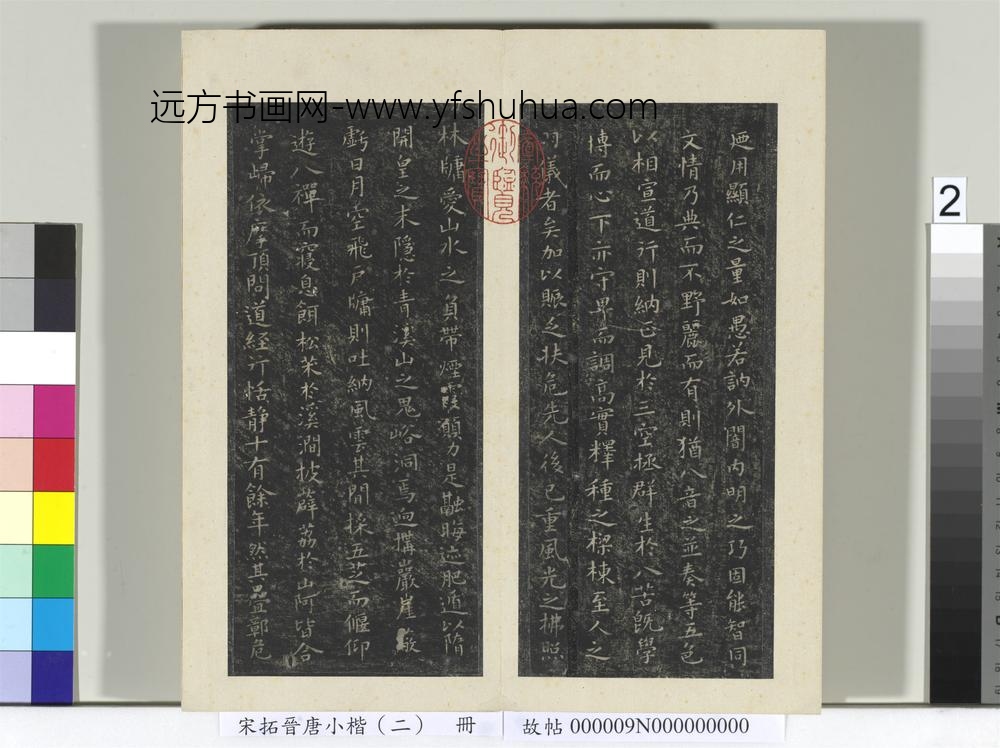 远方书画网-www.yfshuhua.com
迺用顯仁之量如愚若訥外闇内明之巧固能智同
文情乃典而不野麗而有則猶八音之並奏等五色
以相宣道行則納正見於三空拯群生於八苦既學
博而心下亦守卑而調高實釋種之樑棟至人之
羽儀者矣加以賑乏扶危先人後己重風光之拂照
林牖愛山水之負帶煙霞願力是融晦迹肥遁以隋
開皇之末隱於青溪山之鬼峪洞焉迥搆巖崖蔽
虧日月空飛戶牖則吐納風雲其間採五芝而偃仰
遊八禪而寢息餌松朮於溪澗披薜荔於山阿皆合
掌歸依摩頂問道經行恬靜十有餘年然其疊鄣危
御覽
2
宋拓晉唐小楷（二） 冊
故帖 000009N000000000